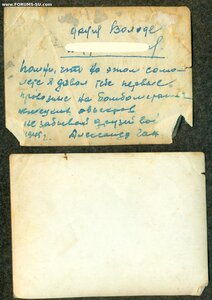 FORUMS-SU.com
другу Володе
Помни, что на этом само
лете я давал тебе первые
провозные на бомбометание
немецких объектов
не забывай друзей
1945г. Александр